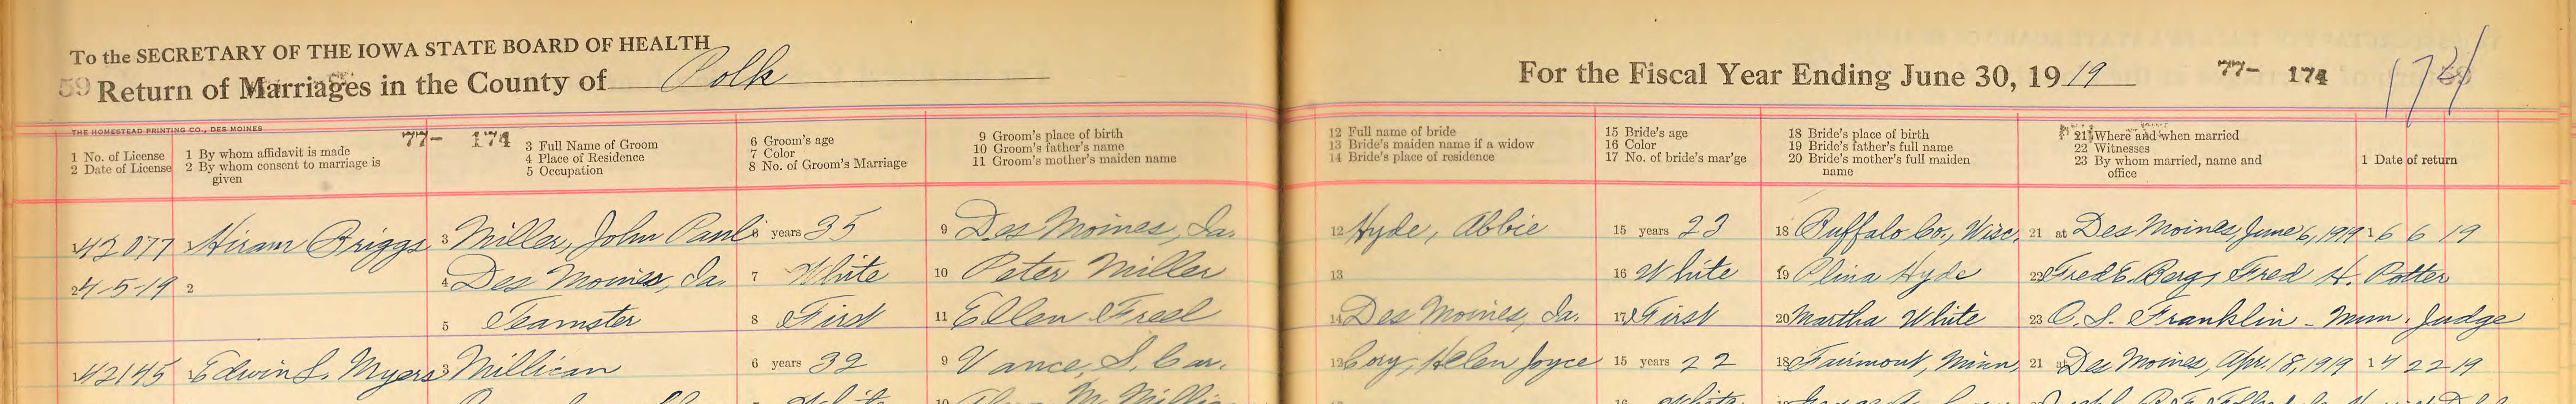 To the SECRETARY OF THE IOWA STATE BOARD OF HEALTH
59 Return of Marriages in the County of Polk
For the Fiscal Year Ending June 30, 1919 77- 174
THE HOMESTEAD PRINTING CO., DES MOINES
77- 174
1 No. of License
2 Date of License
1 By whom affidavit is made
2 By whom consent to marriage is
given
3 Full Name of Groom
4 Place of Residence
5 Occupation
6 Groom's age
7 Color
8 No. of Groom's Marriage
9 Groom's place of birth
10 Groom's father's name
11 Groom's mother's maiden name
12 Full name of bride
13 Bride's maiden name if a widow
14 Bride's place of residence
15 Bride's age
16 Color
17 No. of bride's mar'ge
18 Bride's place of birth
19 Bride's father's full name
20 Bride's mother's full maiden
name
21 Where and when married
22 Witnesses
23 By whom married, name and
office
1 Date of return
1 42077 Hiram Briggs 3 Miller, John Paul 6 years 35 9 Des Moines, Ia. 12 Hyde, Abbie 15 years 23 18 Buffalo Co., Wisc. 21 at Des Moines, June 6, 1919 1 6 6 19
2 4-5-19 2 4 Des Moines, Ia. 7 White 10 Peter Miller 13 16 White 19 Plina Hyde 22 Fred E. Berg, Fred H. Potter
5 Teamster 8 First 11 Ellen Freel 14 Des Moines, Ia. 17 First 20 Martha White 23 O. S. Franklin - Mun. Judge
1 42145 Edwin S. Myers 3 Millican 6 years 32 9 Vance, S. Car. 12 Cory, Helen Joyce 15 years 22 18 Fairmont, Minn. 21 at Des Moines, Apr. 18, 1919 1 4 22 19